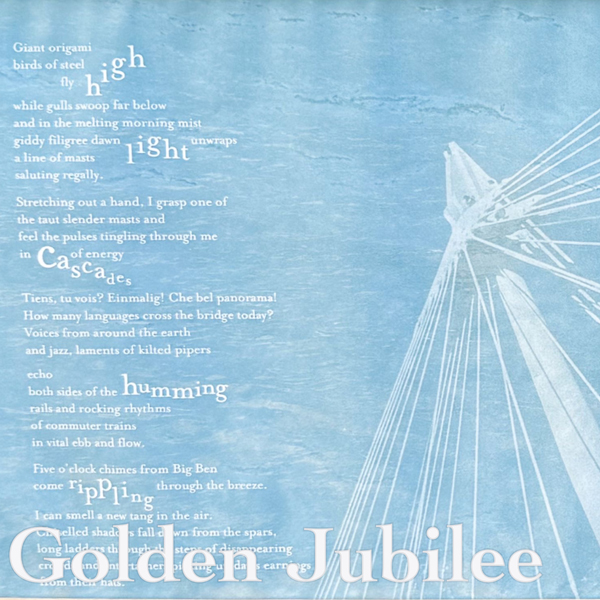 Giant origami
birds of steel
fly high
while gulls swoop far below
and in the melting morning mist
giddy filigree dawn light unwraps
a line of masts
saluting regally.
Stretching out a hand, I grasp one of
the taut slender masts and
feel the pulses tingling through me
in Cascades of energy
Tiens, tu vois? Einmalig! Che bel panorama!
How many languages cross the bridge today?
Voices from around the earth
and jazz, laments of kilted pipers
echo
both sides of the humming
rails and rocking rhythms
of commuter trains
in vital ebb and flow.
Five o'clock chimes from Big Ben
come rippling through the breeze.
I can smell a new tang in the air.
shadows fall down from the spars,
long ladders through the steps of disappearing
crowds and entertainers earnings
from their hats.
Golden Jubilee